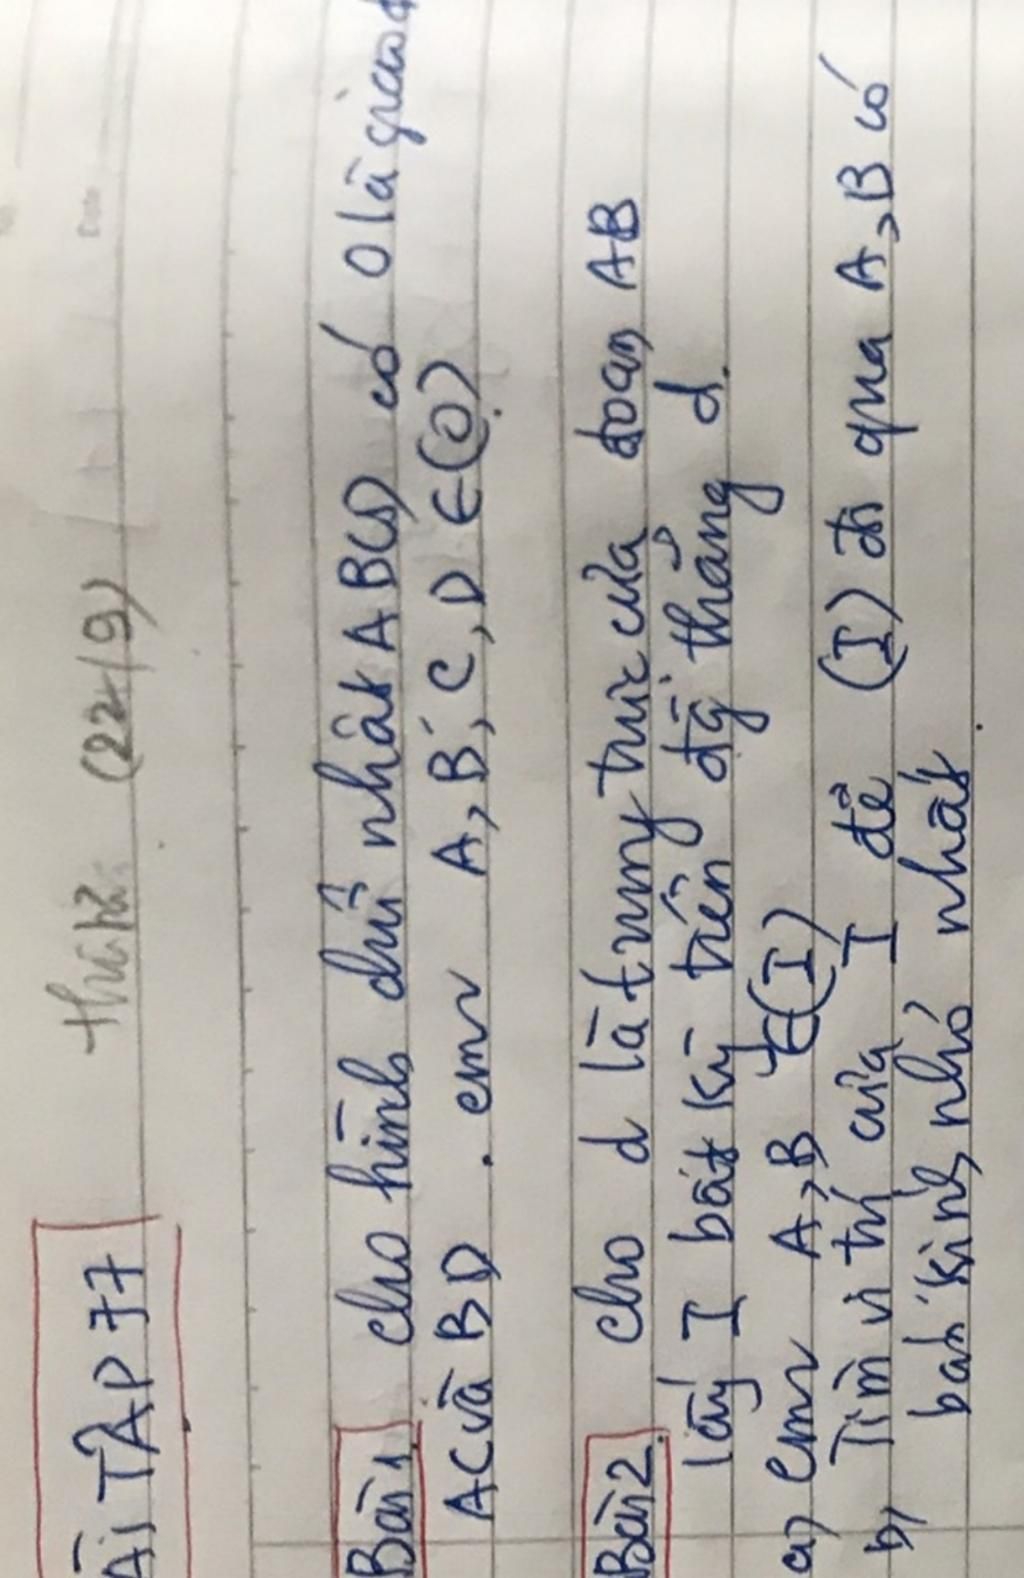 ÀI TẬP 77 (22/9)
Bài 1. cho hình chữ nhật ABCD có O là giao
AC và BD. cm A, B, C, D ∈ (O).
Bài 2. cho d là trung trực của đoạn AB
lấy I bất kỳ trên đg thẳng d.
a) cm A, B ∈ (I)
b) Tìm vị trí của I để (I) đi qua A, B có
bán kính nhỏ nhất.